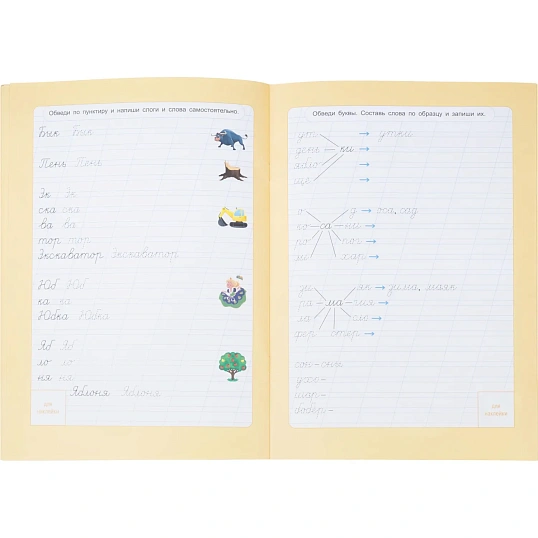 Обведи по пунктиру и напиши слоги и слова самостоятельно.
Бык Бык
Пень Пень
Эк Эк
ска ска
ва ва
тор тор
Экскаватор экскаватор
Юб Юб
ка ка
Юбка Юбка
Яб Яб
ло ло
ня ня
Яблоня Яблоня
Обведи буквы. Составь слова по образцу и запиши их.
ут → утки
день ки →
ябло →
ще →
о д → оса, сад
ко са ни →
ро пог →
хар →
зи як → зима, маяк
ра ма гия →
ла сло →
фор стер →
сон-оны
ухо-
шар-
бобёр-
для наклейки